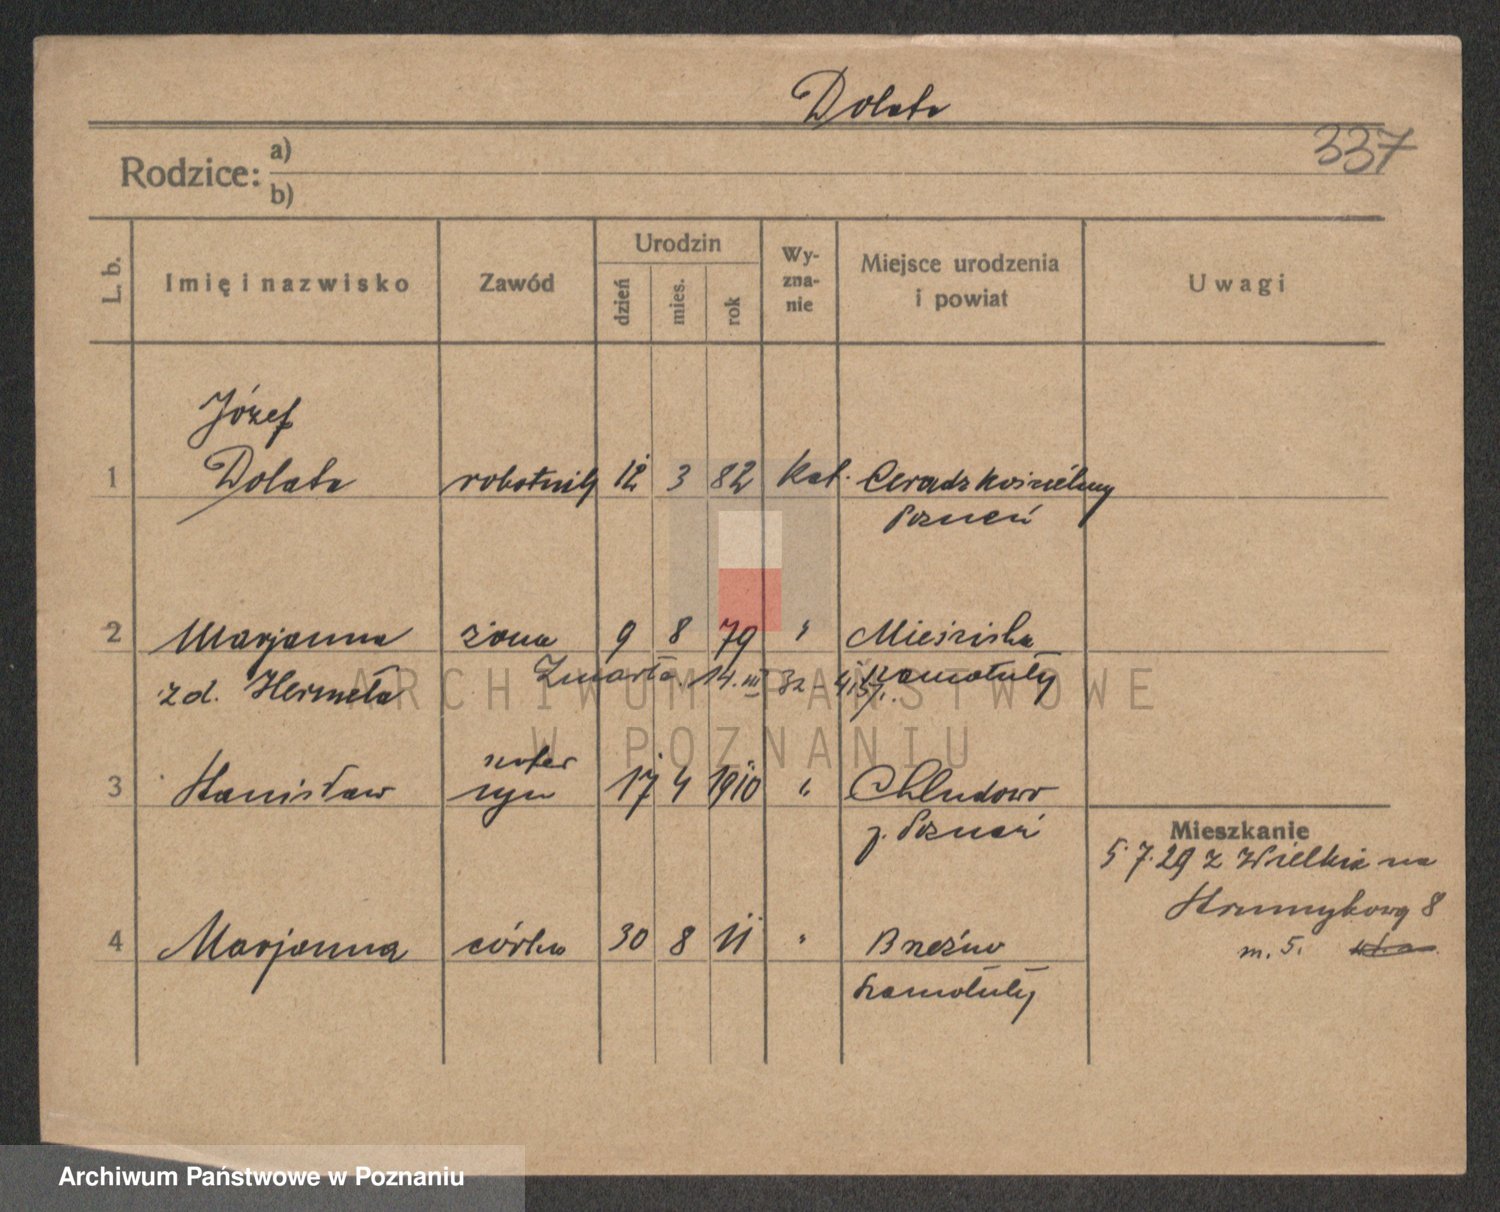 Dolata
337
Rodzice: a)
b)
L. b.
Imię i nazwisko
Zawód
Urodzin
dzień
mies.
rok
Wy-
zna-
nie
Miejsce urodzenia
i powiat
Uwagi
Józef
1 Dolata robotnik 12 3 82 kat. Ceradz Kościelny
Poznań
2 Marjanna żona 9 8 79 "
z d. Hermeła Zmarła 14. III 32. Szamotuły
szofer
3 Stanisław syn 17 4 1910 " Chludowo
p. Poznań
Mieszkanie
5.7.29 z Wielkie na
Strumykową 8
m. 5.
4 Marjanna córka 30 8 11 " Brzeźno
Szamotuły
ARCHIWUM PAŃSTWOWE
W POZNANIU
Archiwum Państwowe w Poznaniu